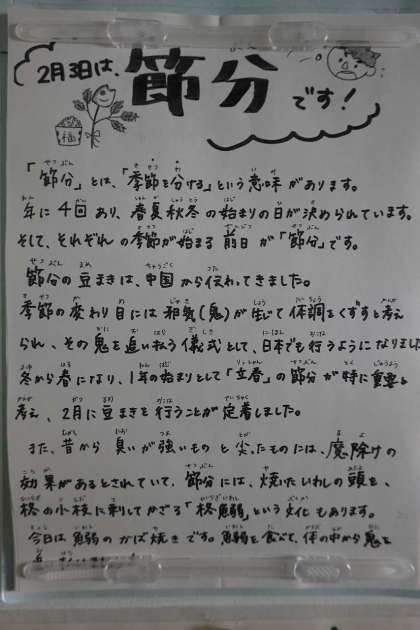 2月3日は、節分です！
福
「節分」とは、「季節を分ける」という意味があります。
年に4回あり、春夏秋冬の始まりの日が決められています。
そして、それぞれの季節が始まる前日が「節分」です。
節分の豆まきは、中国から伝わってきました。
季節の変わり目には邪気(鬼)が生じて体調をくずすと考え
られ、その鬼を追い払う儀式として、日本でも行うようになりました
冬から春になり、1年の始まりとして「立春」の節分が特に重要と
考え、2月に豆まきを行うことが定着しました。
また、昔から臭いが強いものと尖ったものには、魔除けの
効果があるとされていて、節分には、焼いたいわしの頭を、
柊の小枝に刺してかざる「柊鰯」という文化もあります。
今日は鰯のかば焼きです。鰯を食べて、体の中から鬼を